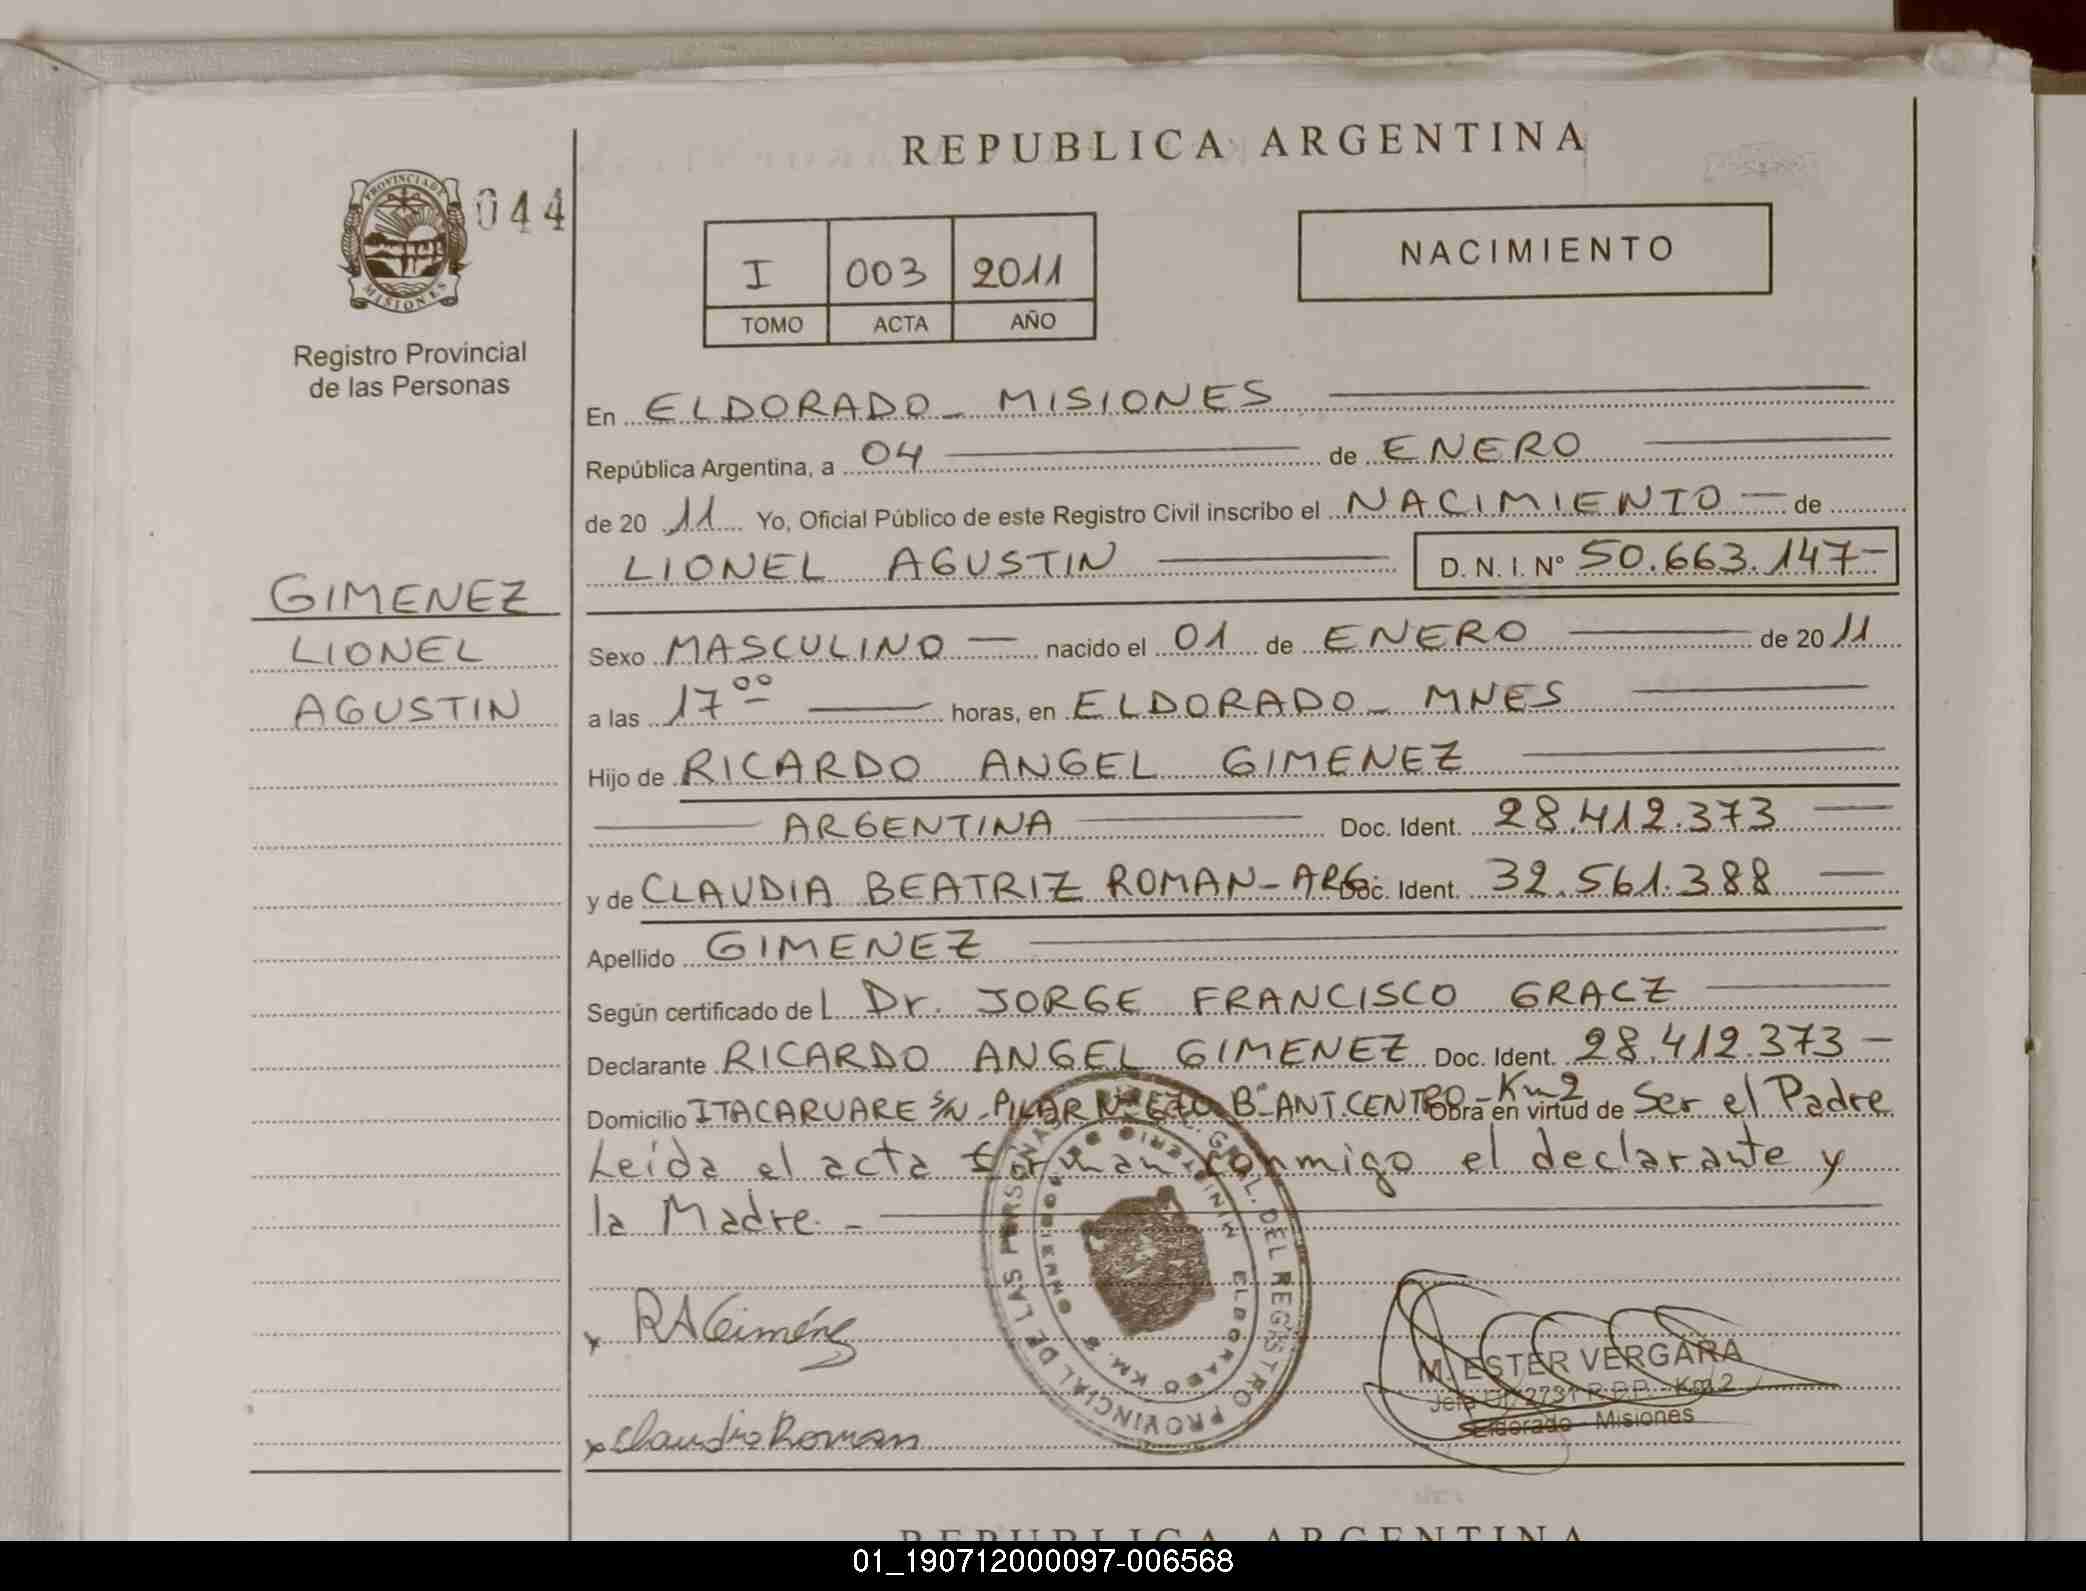 REPUBLICA ARGENTINA
PROVINCIA DE
MISIONES
044
Registro Provincial
de las Personas
I 003 2011
TOMO ACTA AÑO
NACIMIENTO
En ELDORADO - MISIONES
República Argentina, a 04 de ENERO
de 20 11 Yo, Oficial Público de este Registro Civil inscribo el NACIMIENTO de
LIONEL AGUSTIN D. N. I. Nº 50.663.147-
GIMENEZ
LIONEL
AGUSTIN
Sexo MASCULINO nacido el 01 de ENERO de 20 11
a las 17 00 horas, en ELDORADO - MNES
Hijo de RICARDO ANGEL GIMENEZ
ARGENTINA Doc. Ident. 28.412.373
y de CLAUDIA BEATRIZ ROMAN - ARG. Doc. Ident. 32.561.388
Apellido GIMENEZ
Según certificado del Dr. JORGE FRANCISCO GRACZ
Declarante RICARDO ANGEL GIMENEZ Doc. Ident. 28.412.373 -
Domicilio ITACARUARE S/N - PILAR Nº 670 Bº ANT. CENTRO - Km 2 Obra en virtud de Ser el Padre
Leída el acta firman conmigo el declarante y
la Madre. -
x RAGiménez
x Claudia Roman
GRAL. DEL REGISTRO PROVINCIAL DE LAS PERSONAS
MINISTERIO DE GOBIERNO
ELDORADO KM. 2
M. ESTER VERGARA
Jefa Of. 2731 R.P.P. - Km 2
Eldorado - Misiones
REPUBLICA ARGENTINA
01_190712000097-006568